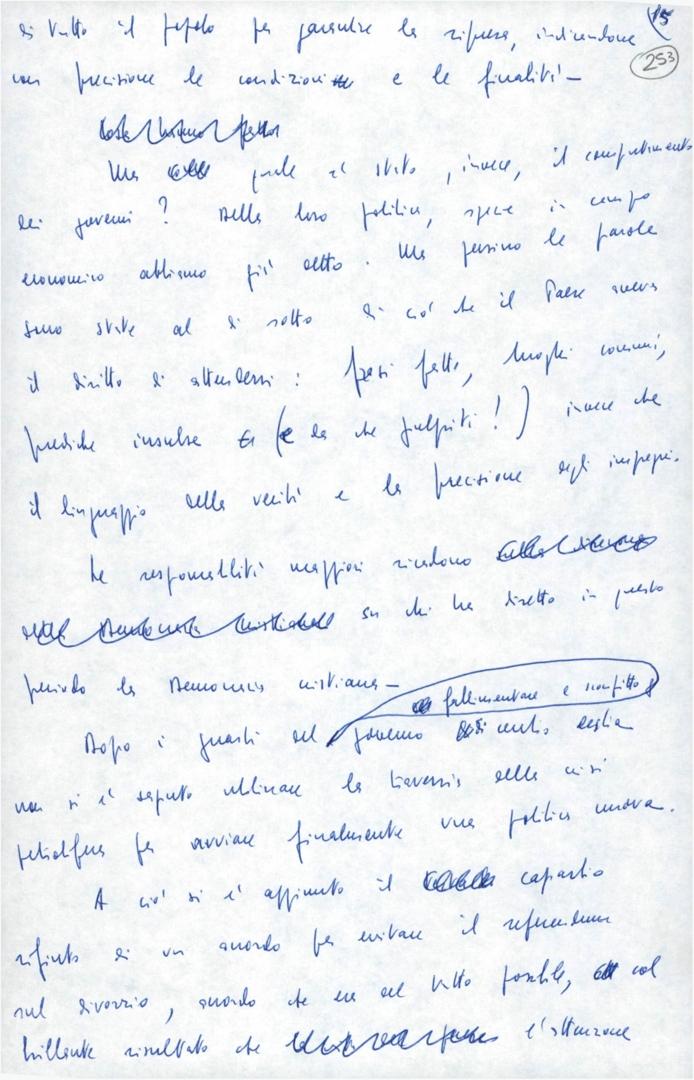 15
253
di tutto il popolo per garantire la ripresa, indicandone
con precisione le condizioni e le finalità –
Ma quale è stato, invece, il comportamento
dei governi? Della loro politica, specie in campo
economico abbiamo già detto. Ma persino le parole
sono state al di sotto di ciò che il Paese aveva
il diritto di attendersi: frasi fatte, luoghi comuni,
prediche insulse (e da che pulpiti!) invece che
il linguaggio della verità e la precisione degli impegni.
Le responsabilità maggiori ricadono
su chi ha diretto in questo
periodo la Democrazia cristiana –
fallimentare e sconfitto
Dopo i guasti del governo di centro destra
non si è saputo utilizzare la traversia della crisi
petrolifera per avviare finalmente una politica nuova.
A ciò si è aggiunto il caparbio
rifiuto di un accordo per evitare il referendum
sul divorzio, accordo che era del tutto possibile, col
brillante risultato che l'attenzione